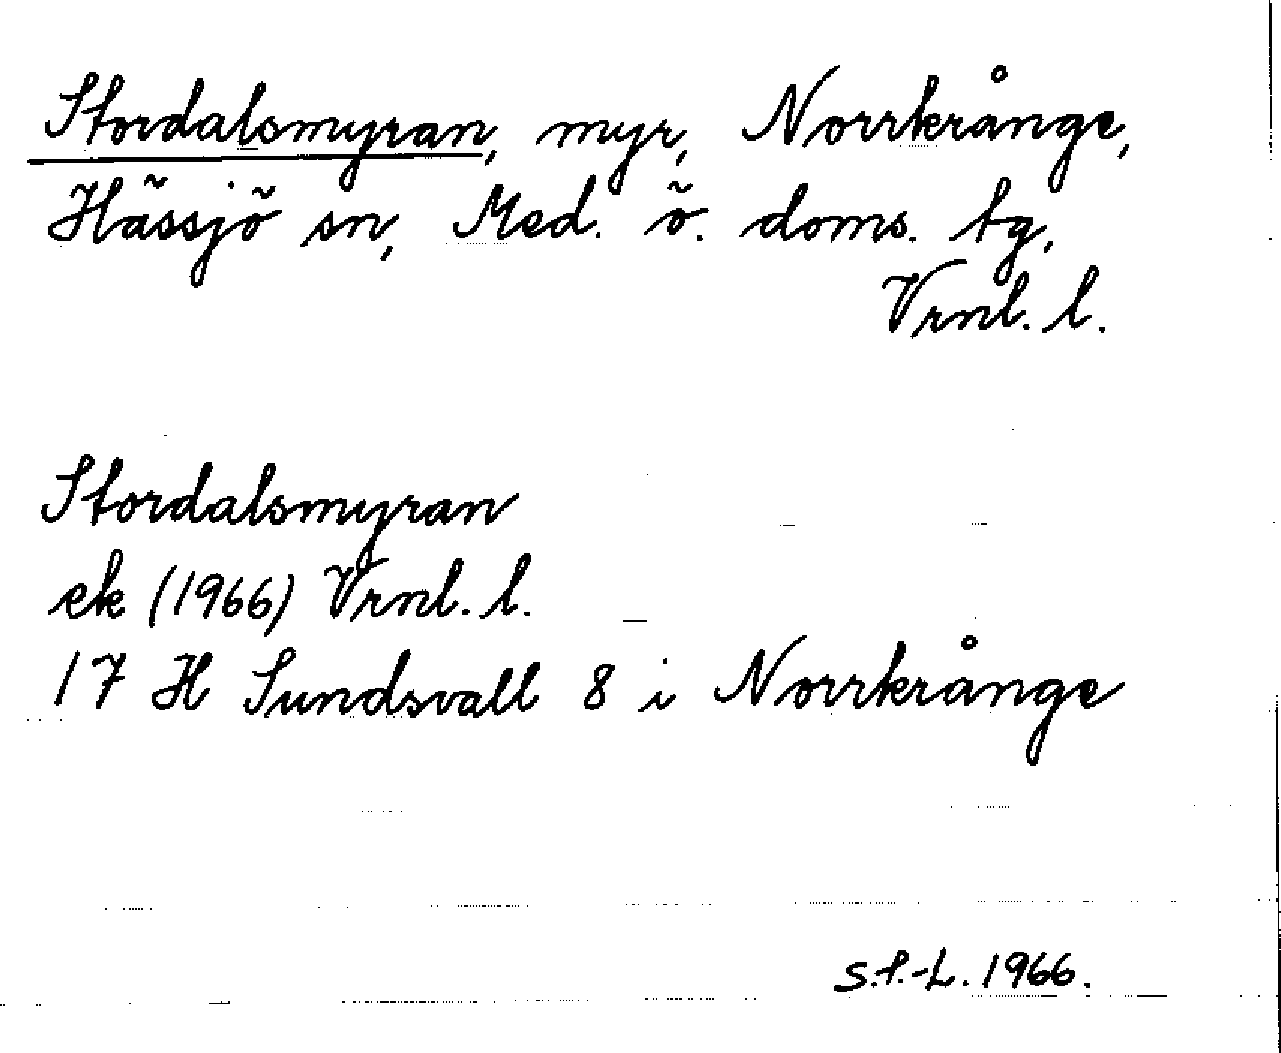 Stordalsmyran, myr, Norrkrånge,
Hässjö sn, Med. ö. doms. tg,
Vrnl. l.
Stordalsmyran
ek (1966) Vrnl. l.
17 H Sundsvall 8 i Norrkrånge
S.P.-L. 1966.